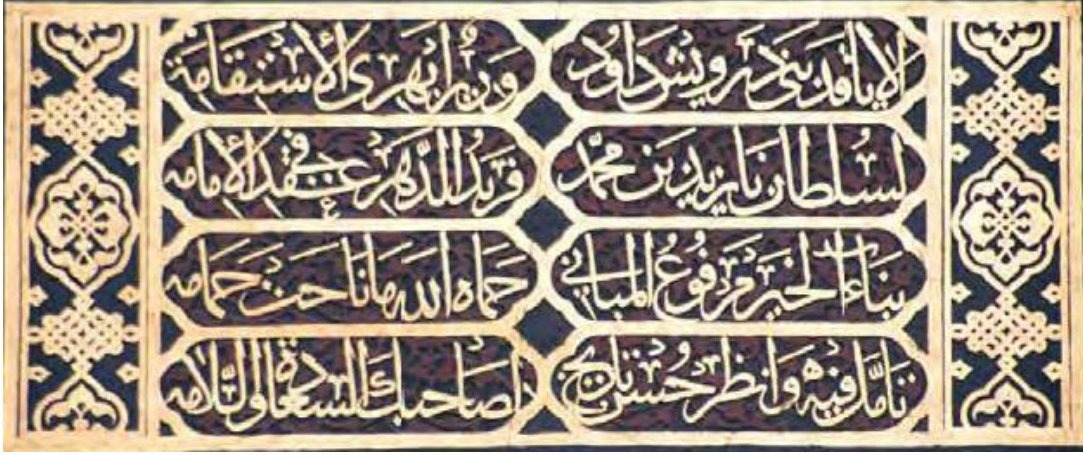 الا يا قد بنى درويش داود الاستقامة
لسلطان بايزيد بن محمد فريد الدهر في عقد الإمامه
بناء الخير مرفوع المباني حماه الله ما ناحت حمامه
تأمل فيه وانظر حسن تاريخ السعادة والسلامه